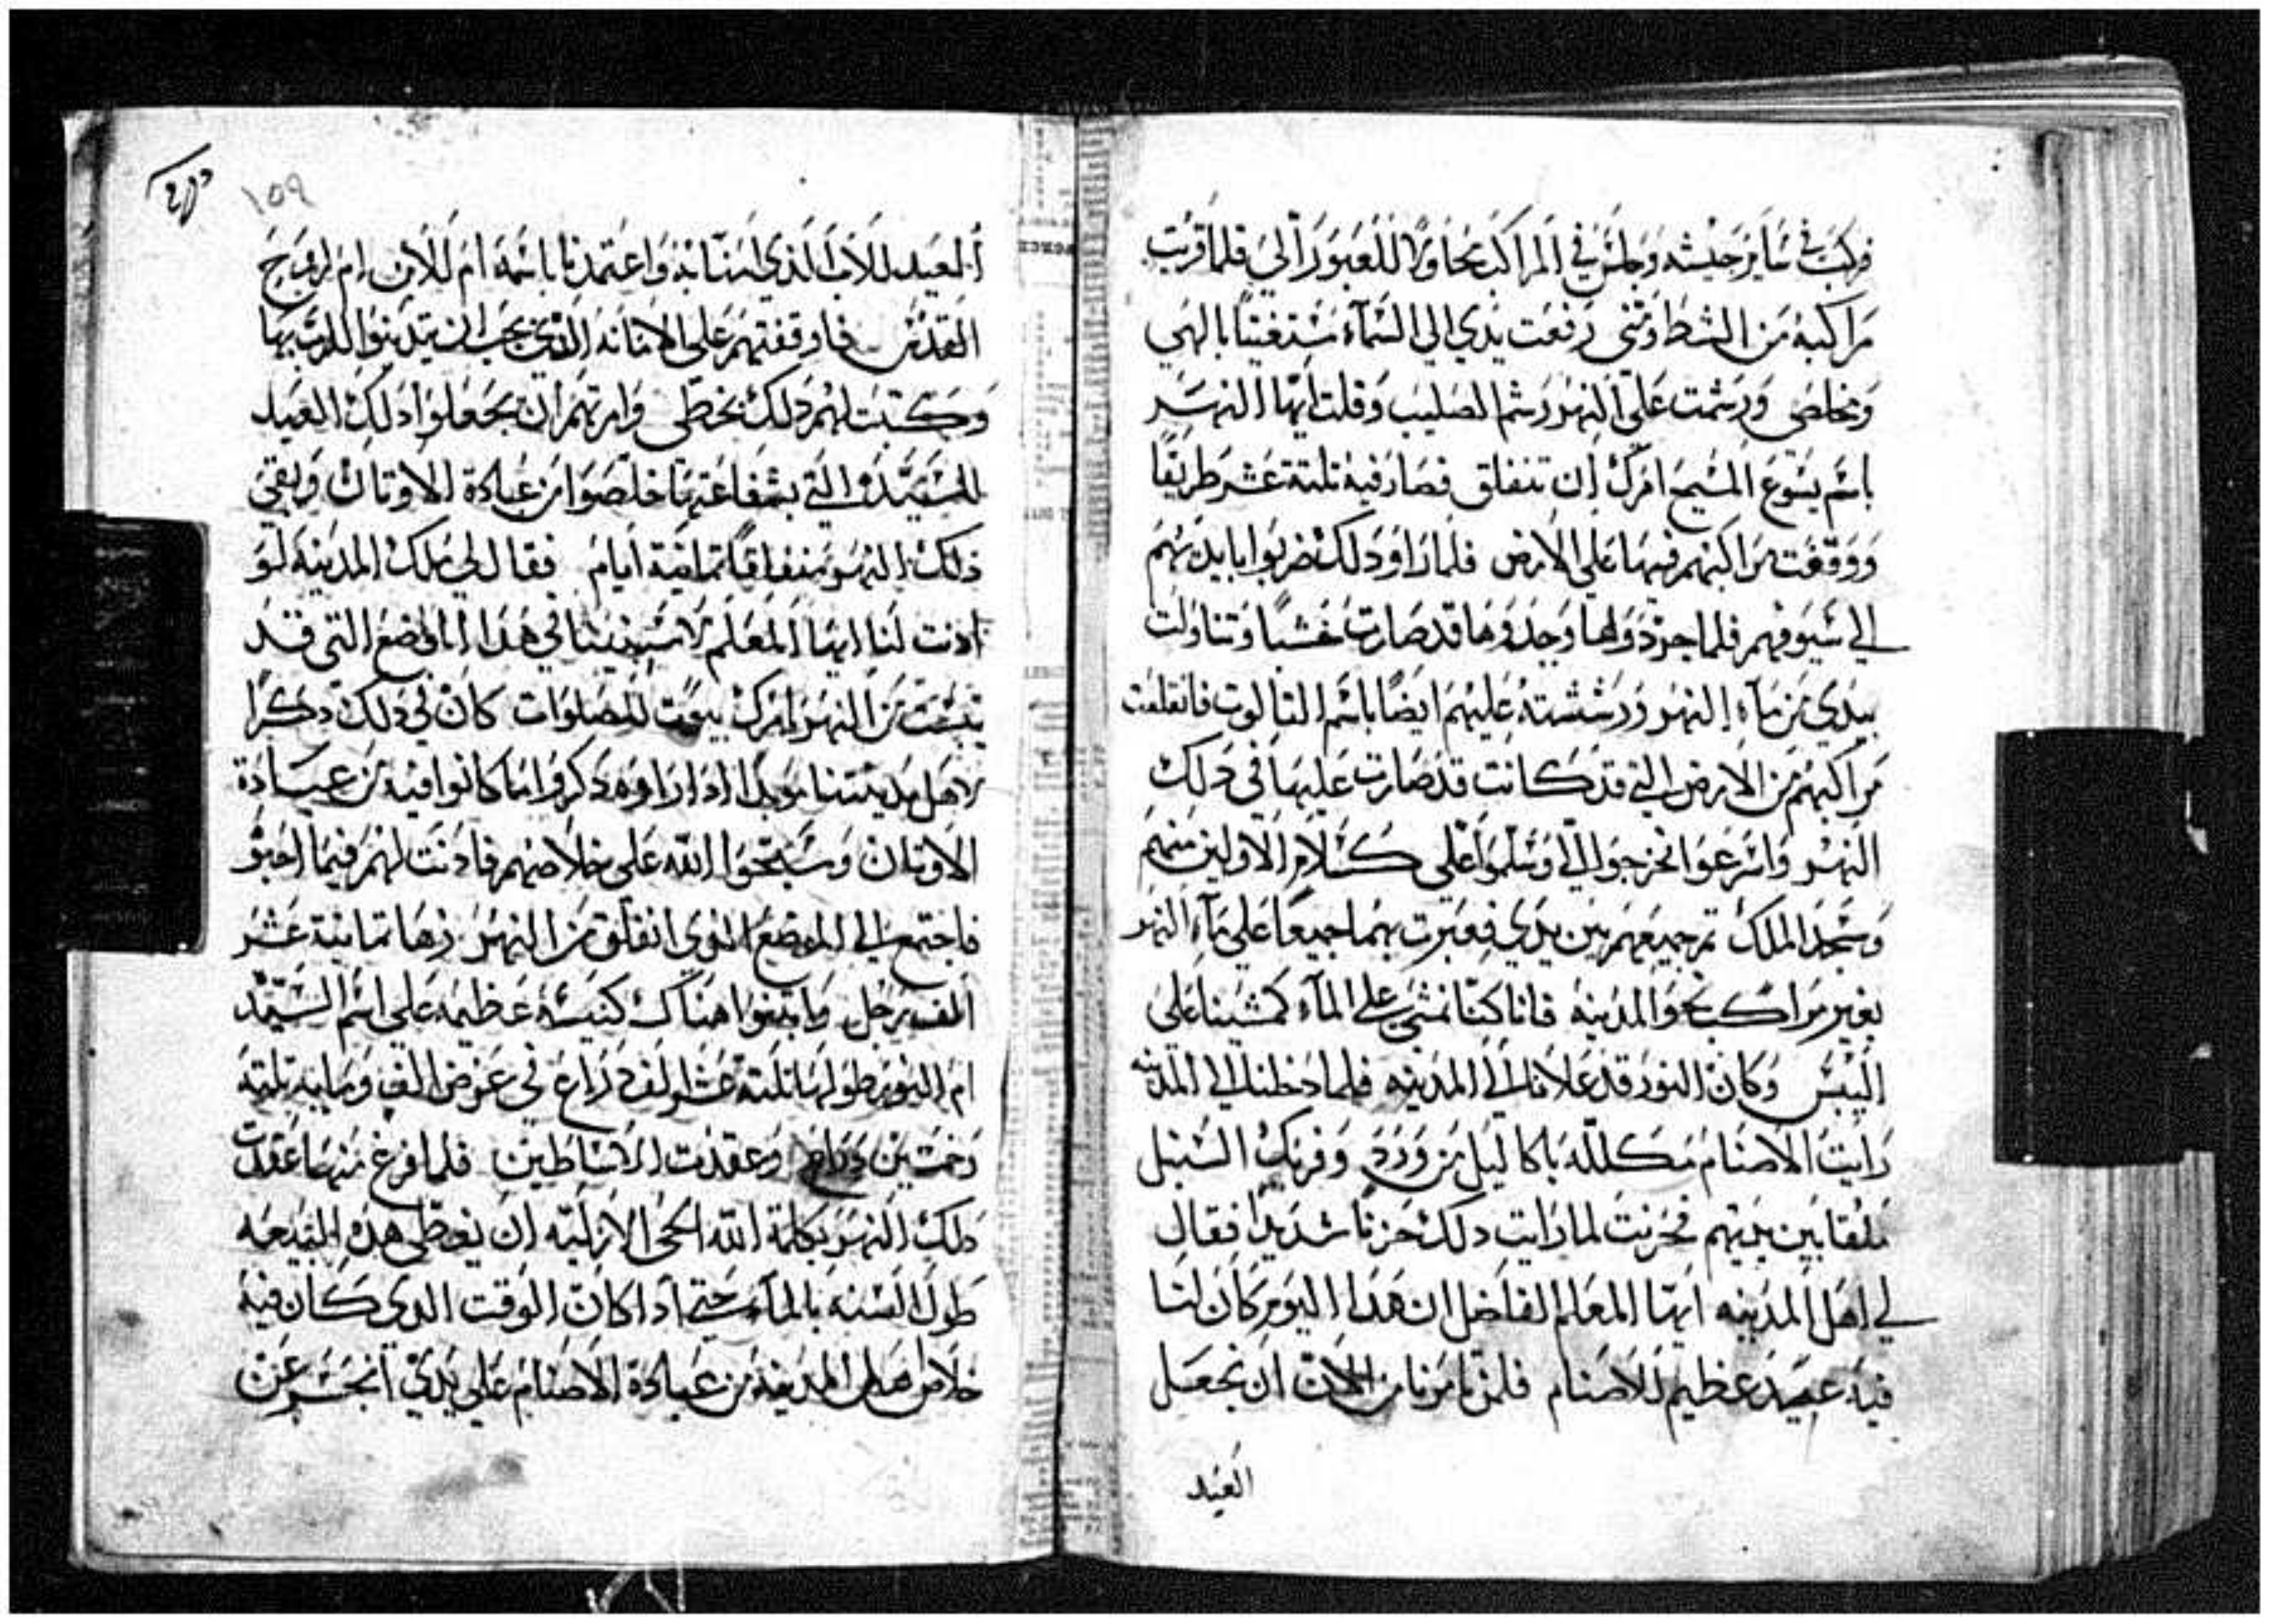 فركب في ساير جيشه وجلس في المراكب محاولا للعبور الي فلما قربت
مراكبه من الشط ومني رفعت يدي الي السمآء مستغيثا بالهي
ومخلصي ورشمت علي النهر رشم الصليب وقلت ايها النهر
باسم يسوع المسيح امرك ان تنفلق فصار فيه ثلثة عشر طريقا
ووقفت مراكبهم فيها علي الارض فلما راو دلك ضربوا بايديهم
الي سيوفهم فلما جردولها وجدوها قد صارت خشبا وتناولت
بيدي من مآء النهر ورششته عليهم ايضا باسم التالوت فانقلعت
مراكبهم من الارض التي قد كانت قد صارت عليها في دلك
النهر واسرعوا نحو جوالي وسلموا علي كسلام الاولين منهم
وسجد الملك تم جميعهم بين يدي فعبرت بهم جميعا علي مآء النهر
بغير مراكب نحو المدينه فانا كنا نمشي علي المآء كمشينا علي
اليبس وكان النور قد علانا الي المدينه فلما دخلنا الي المدينه
رايت الاصنام مكلله باكاليل من ورد وفريك السنبل
ملقا بين يديهم فحزنت لما رايت دلك حزنا شديدا فقال
لي اهل المدينه ايها المعلم الفاضل ان هدا اليوم كان لنا
فيه عيد عظيم للاصنام فلمن تامرنا من الان ان نجعل
العيد
١٥٩
العيد للاب الذي امنا به واعتمدنا باسمه ام للابن ام لروح
القدس فاوقفتهم علي الامانه التي يجب ان يدينوا للرب بها
وكتبت لهم دلك بخطي وامرتهم ان يجعلوا دلك العيد
للسيده التي بشفاعتها خلصوا من عبادة الاوتان وبقي
ذلك النهر منفلقا تمانية ايام فقال لي ملك المدينه لو
ادنت لنا ايها المعلم لاسسنا في هدا المواضع التي قد
يبست من النهر بامرك بيوت للصلوات كان لي دلك دكرا
لاهل مدينتنا موبدا ادا راوه دكروا ما كانوا فيه من عبادة
الاوتان وسبحوا الله علي خلاصهم فادنت لهم فيما احبو
فاجتمع الي الموضع الذي انفلق من النهر زها تمانية عشر
الف رجل وابتنوا هناك كنيسة عظيمه علي اسم السيده
ام النور طولها ثلثة عشر الف دراع في عرض الف ومايه ثلثة
وخمسين دراع وعقدت الاساطين فلما فرغ منها عقدت
دلك النهر بكلمة الله الحي الازليه ان يغطي هده البيعه
طول السنه بالمآء حتي ادا كان الوقت الدي كان فيه
خلاص اهل المدينه من عبادة الاصنام علي يدي انحسر عن